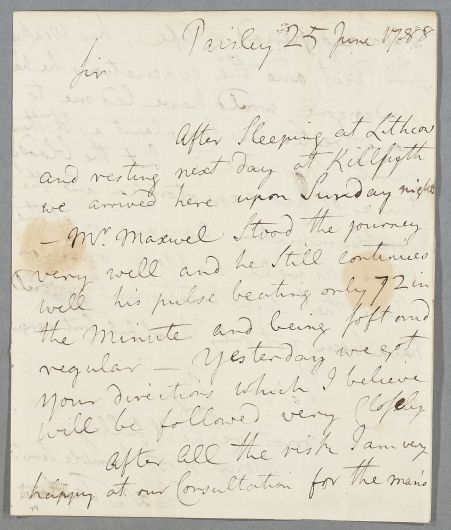 Paisley 25 June 1788
Sir
After Sleeping at Lithcow
and resting next day at Killsyth
we arrived here upon Sunday night
– Mr. Maxwel Stood the journey
very well and he Still continues
well his pulse beating only 72 in
the Minute and being soft and
regular – Yesterday we got
your directions which I believe
will be followed very Closely
After all the risk I am very
happy at our Consultation for the man's